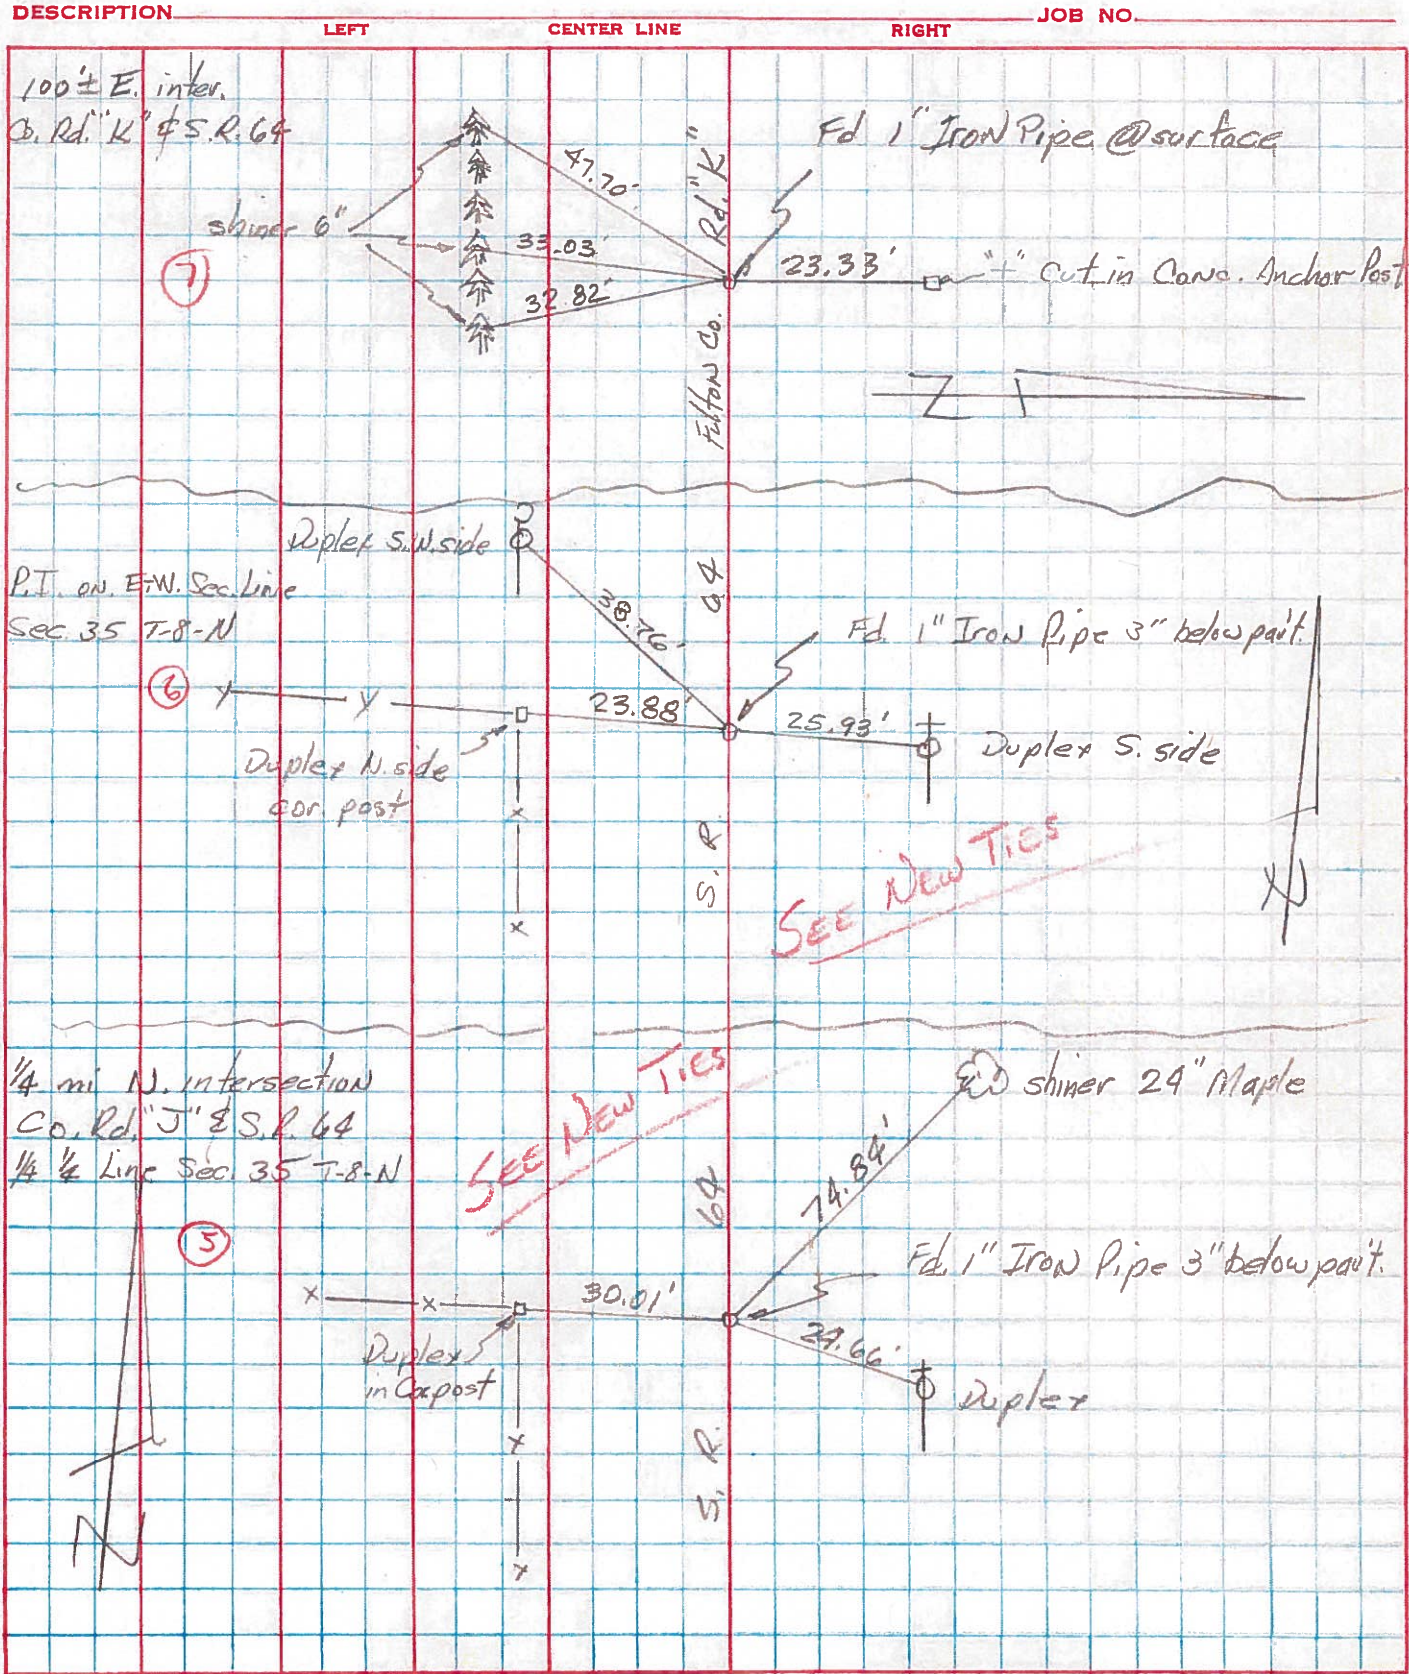 DESCRIPTION
JOB NO.
LEFT CENTER LINE RIGHT
100'± E. inter.
Co. Rd. "K" & S.R. 64
shiner 6"
7
47.70'
33.03'
32.82'
Fulton Co. Rd. "K"
Fd 1" Iron Pipe @ surface
23.33'
"+" Cut in Conc. Anchor Post
N
Duplex S.W. side
P.I. on E-W. Sec. Line
Sec. 35 T-8-N
6
38.76'
23.88'
Duplex N. side
cor. post
S. R. 64
Fd. 1" Iron Pipe 3" below pav't.
25.93'
Duplex S. side
SEE NEW TIES
N
1/4 mi N. intersection
Co. Rd. "J" & S.R. 64
1/4 1/4 Line Sec. 35 T-8-N
5
SEE NEW TIES
shiner 24" Maple
74.84'
Fd. 1" Iron Pipe 3" below pav't.
30.01'
24.66'
Duplex
in Cor. post
Duplex
S. R. 64
N